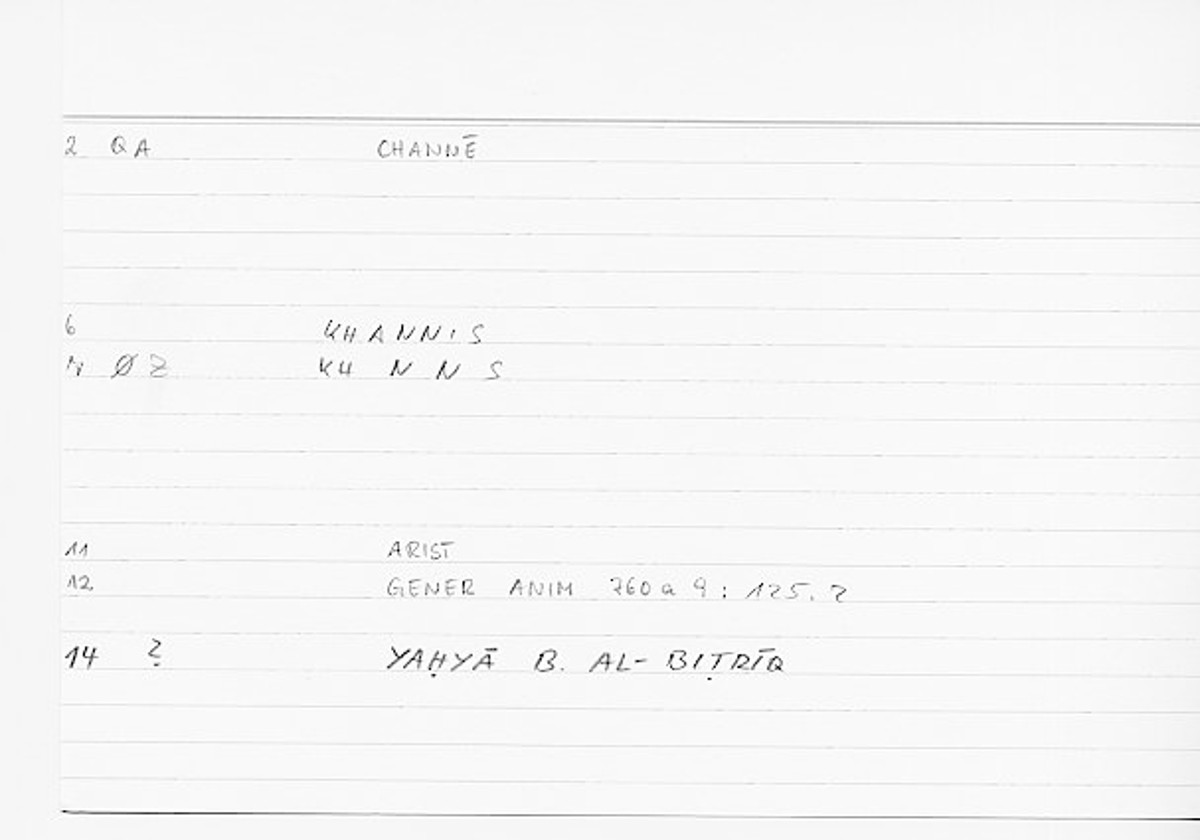 2 QA CHANNĒ
6 KHANNIS
Ø Z KH N N S
11 ARIST
12 GENER ANIM 760a 9 : 125.2
14 ? YAḤYĀ B. AL-BIṬRĪQ